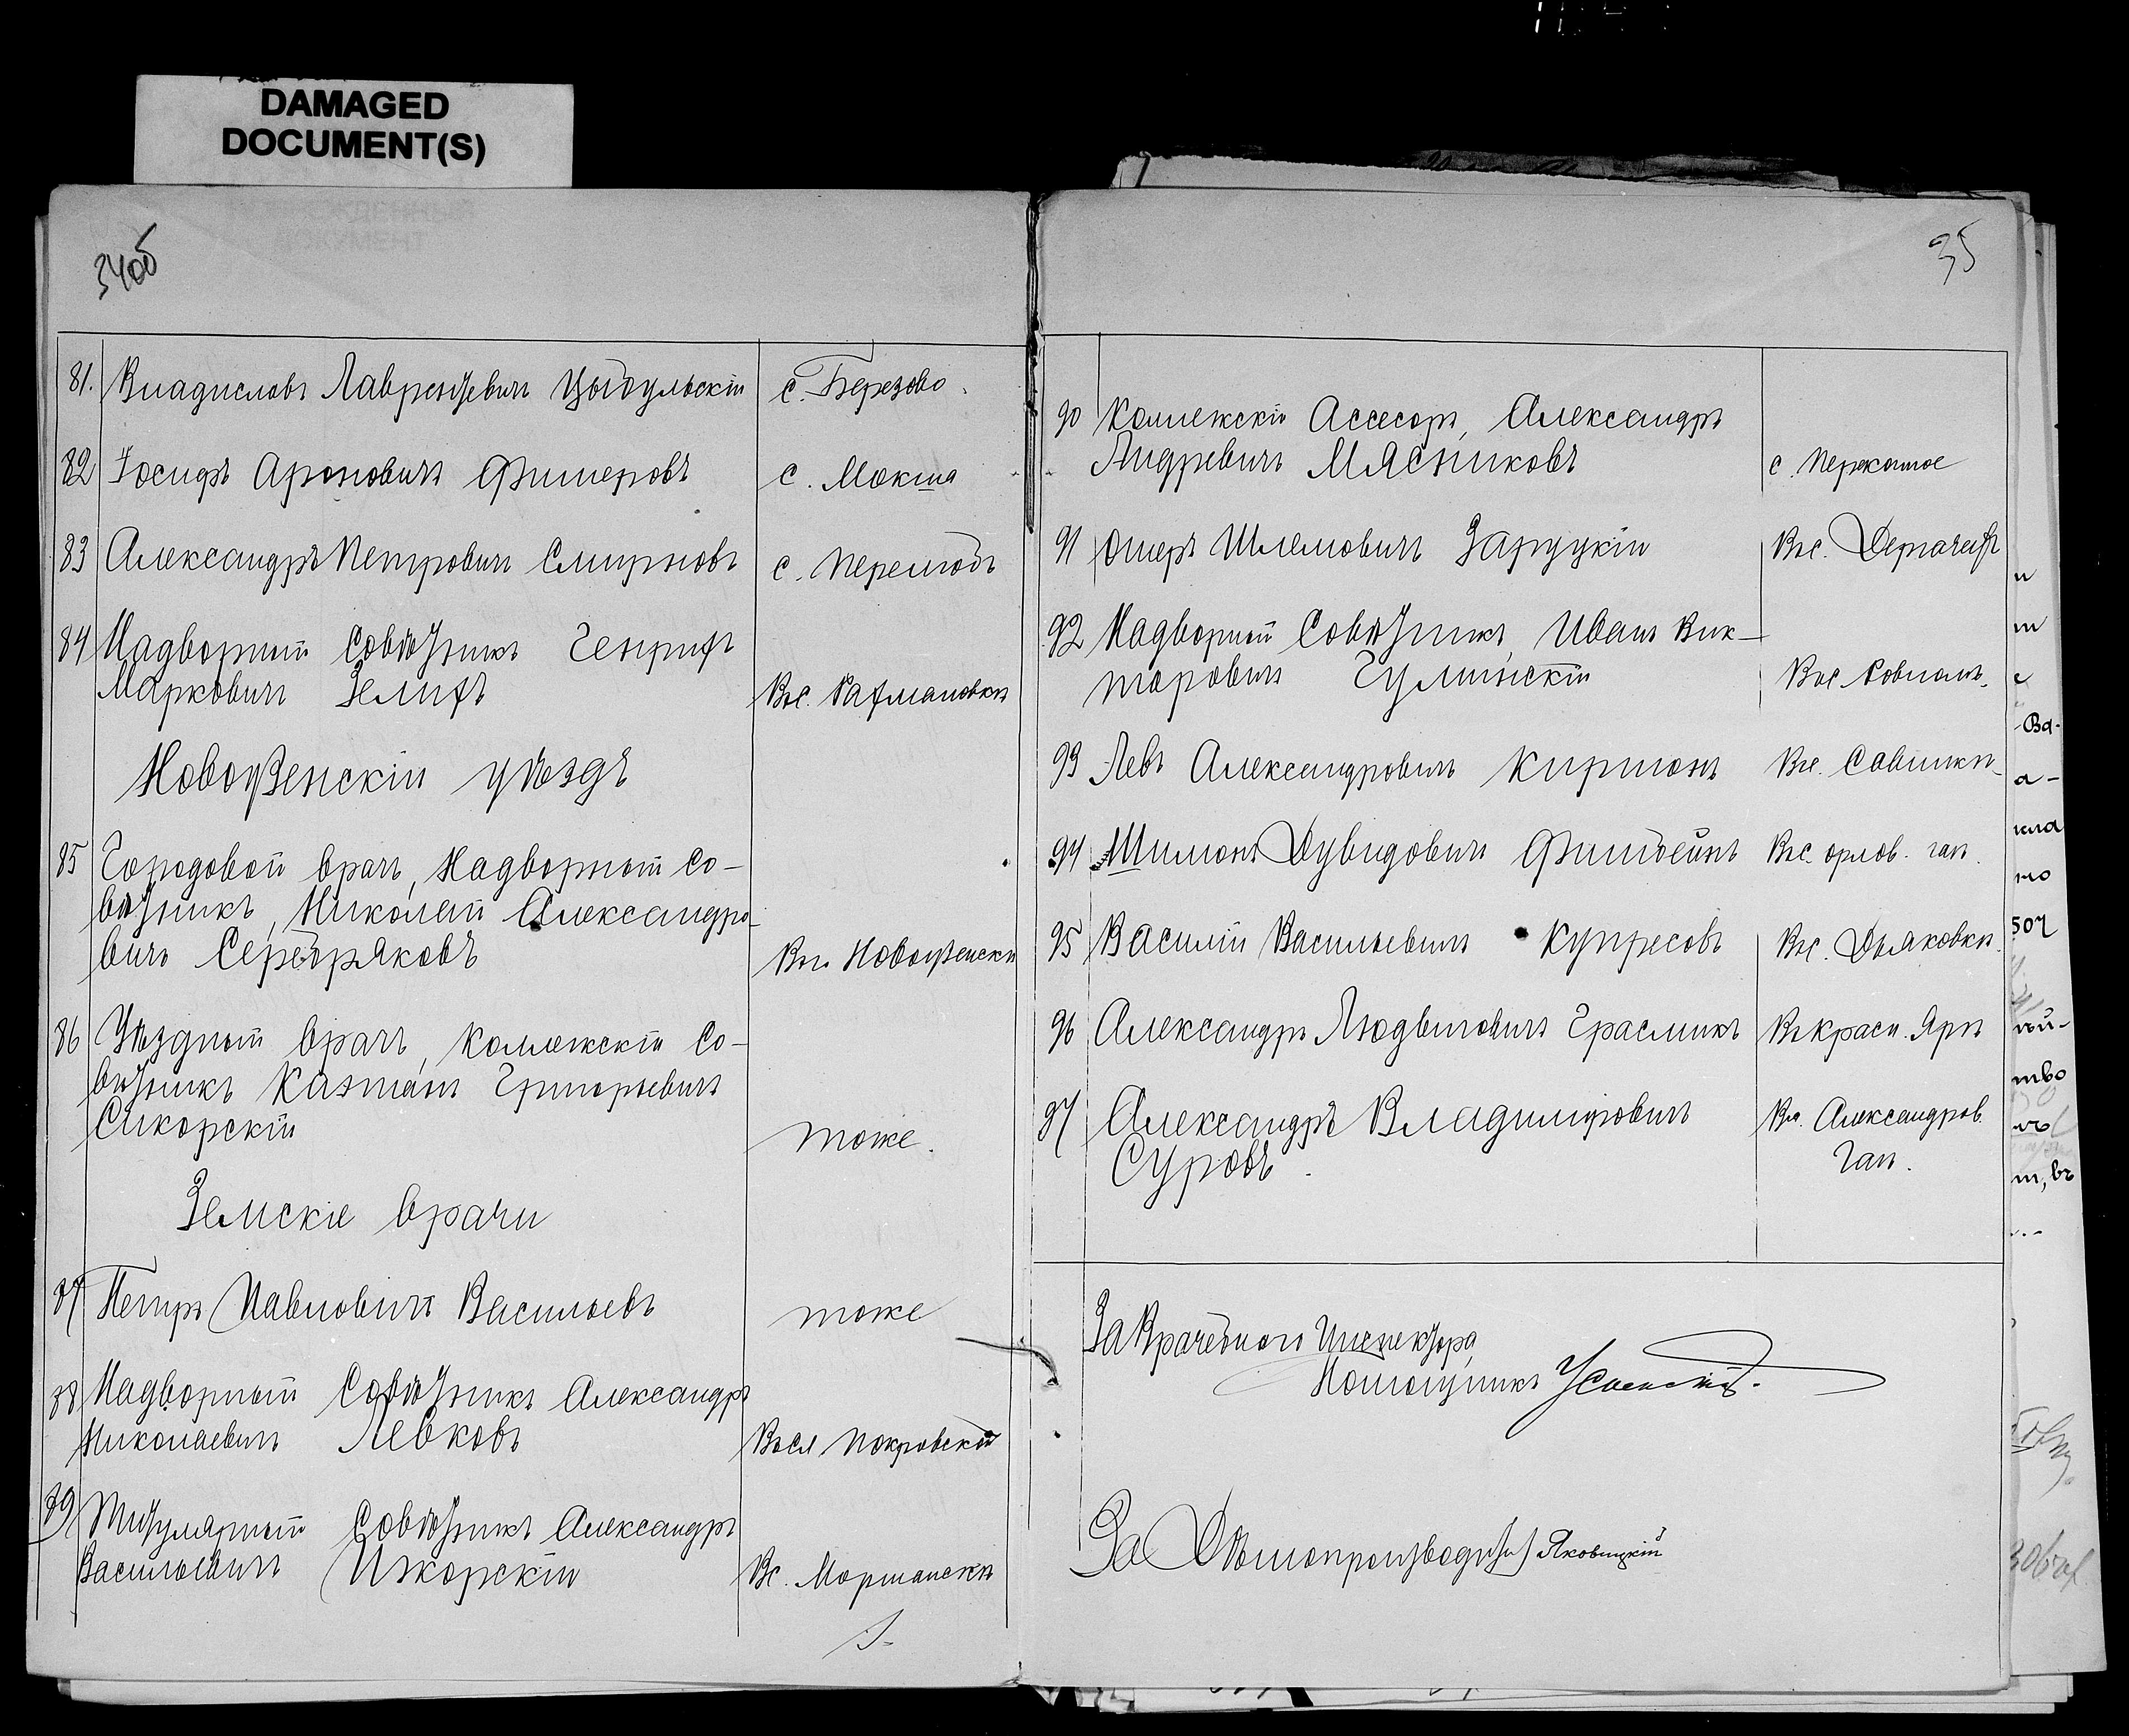 DAMAGED
DOCUMENT(S)
34об
81. Владиславъ Лаврентьевичъ Цыбульскій с. Березово.
82 Іосифъ Ароновичъ Финеровъ с. Мокша
83 Александръ Петровичъ Смирновъ с. Перелюбъ
84 Надворный Совѣтникъ Генрихъ
Марковичъ Зелихъ Въ с. Рахмановкѣ
Новоузенскій уѣздъ
85 Городовой врачъ, Надворный Со-
вѣтникъ, Николай Александро-
вичъ Серебряковъ Въ г. Новоузенскѣ
86 Уѣздный врачъ, Коллежскій Со-
вѣтникъ Каэтанъ Григорьевичъ
Сикорскій тоже.
Земскіе врачи
87 Петръ Павловичъ Васильевъ тоже
88 Надворный Совѣтникъ Александръ
Николаевичъ Левковъ Въ сл Покровской
89 Титулярный Совѣтникъ Александръ
Васильевичъ Ижорскій Въ с. Моршанскѣ
35
90 Коллежскій Ассесоръ, Александръ
Андревичъ Мясниковъ с. Перекопное
91 Ошеръ Шлемовичъ Заруцкій Въ с. Дергачахъ
92 Надворный Совѣтникъ, Иванъ Вик-
торовичъ Гулинскій Въ с Ровномъ.
93 Левъ Александровичъ Кирпонъ Въ с. Савинкѣ
94 Шимонъ Дувидовичъ Финбейнъ Въ с. орлов. гай.
95 Василій Васильевичъ Купресовъ Въ с. Дьяковкѣ.
96 Александръ Людвиговичъ Грасмикъ Въ красн. Ярѣ
97 Александръ Владимировичъ Въ с. Александров.
Суровъ. Гаѣ.
За Врачебнаго Инспектора,
Помощникъ Успенскій.
За Дѣлопроизводителя Яковицкій